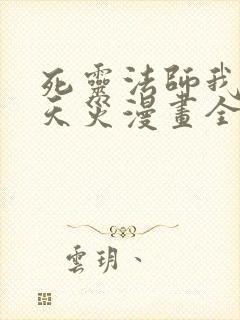 死靈法師我
天災漫畫全
雲玥、